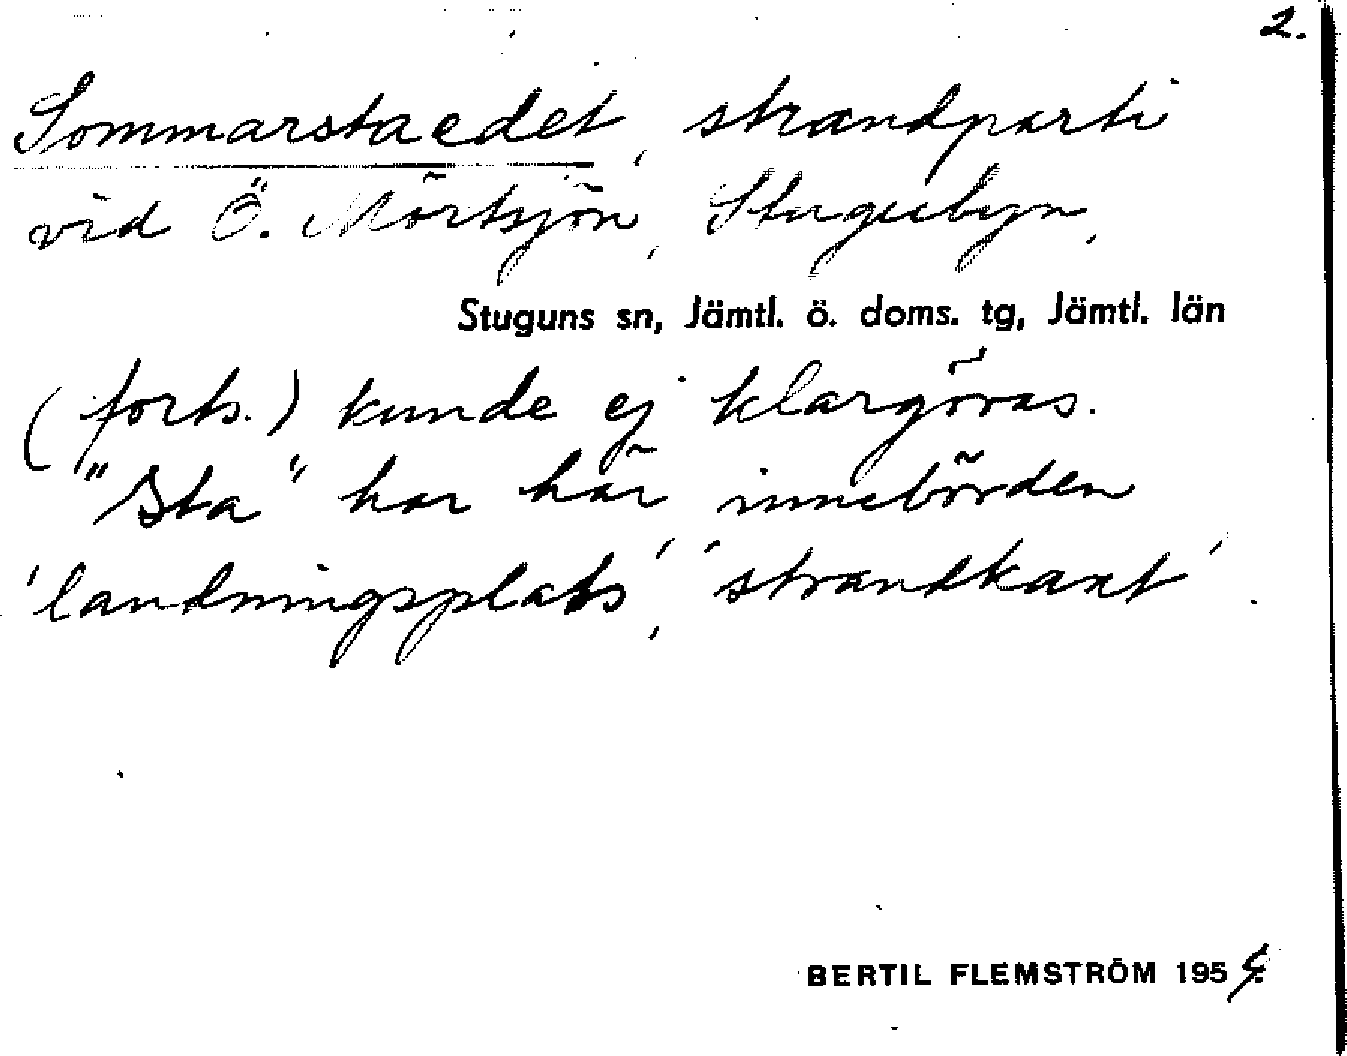 2.
Sommarstaedet, strandparti
vid Ö. Mörtsjön, Stugubyn,
Stuguns sn, Jämtl. ö. doms. tg, Jämtl. län
(forts.) kunde ej klargöras.
"Sta" har här innebörden
'landningsplats', 'strandkant'.
BERTIL FLEMSTRÖM 1954.